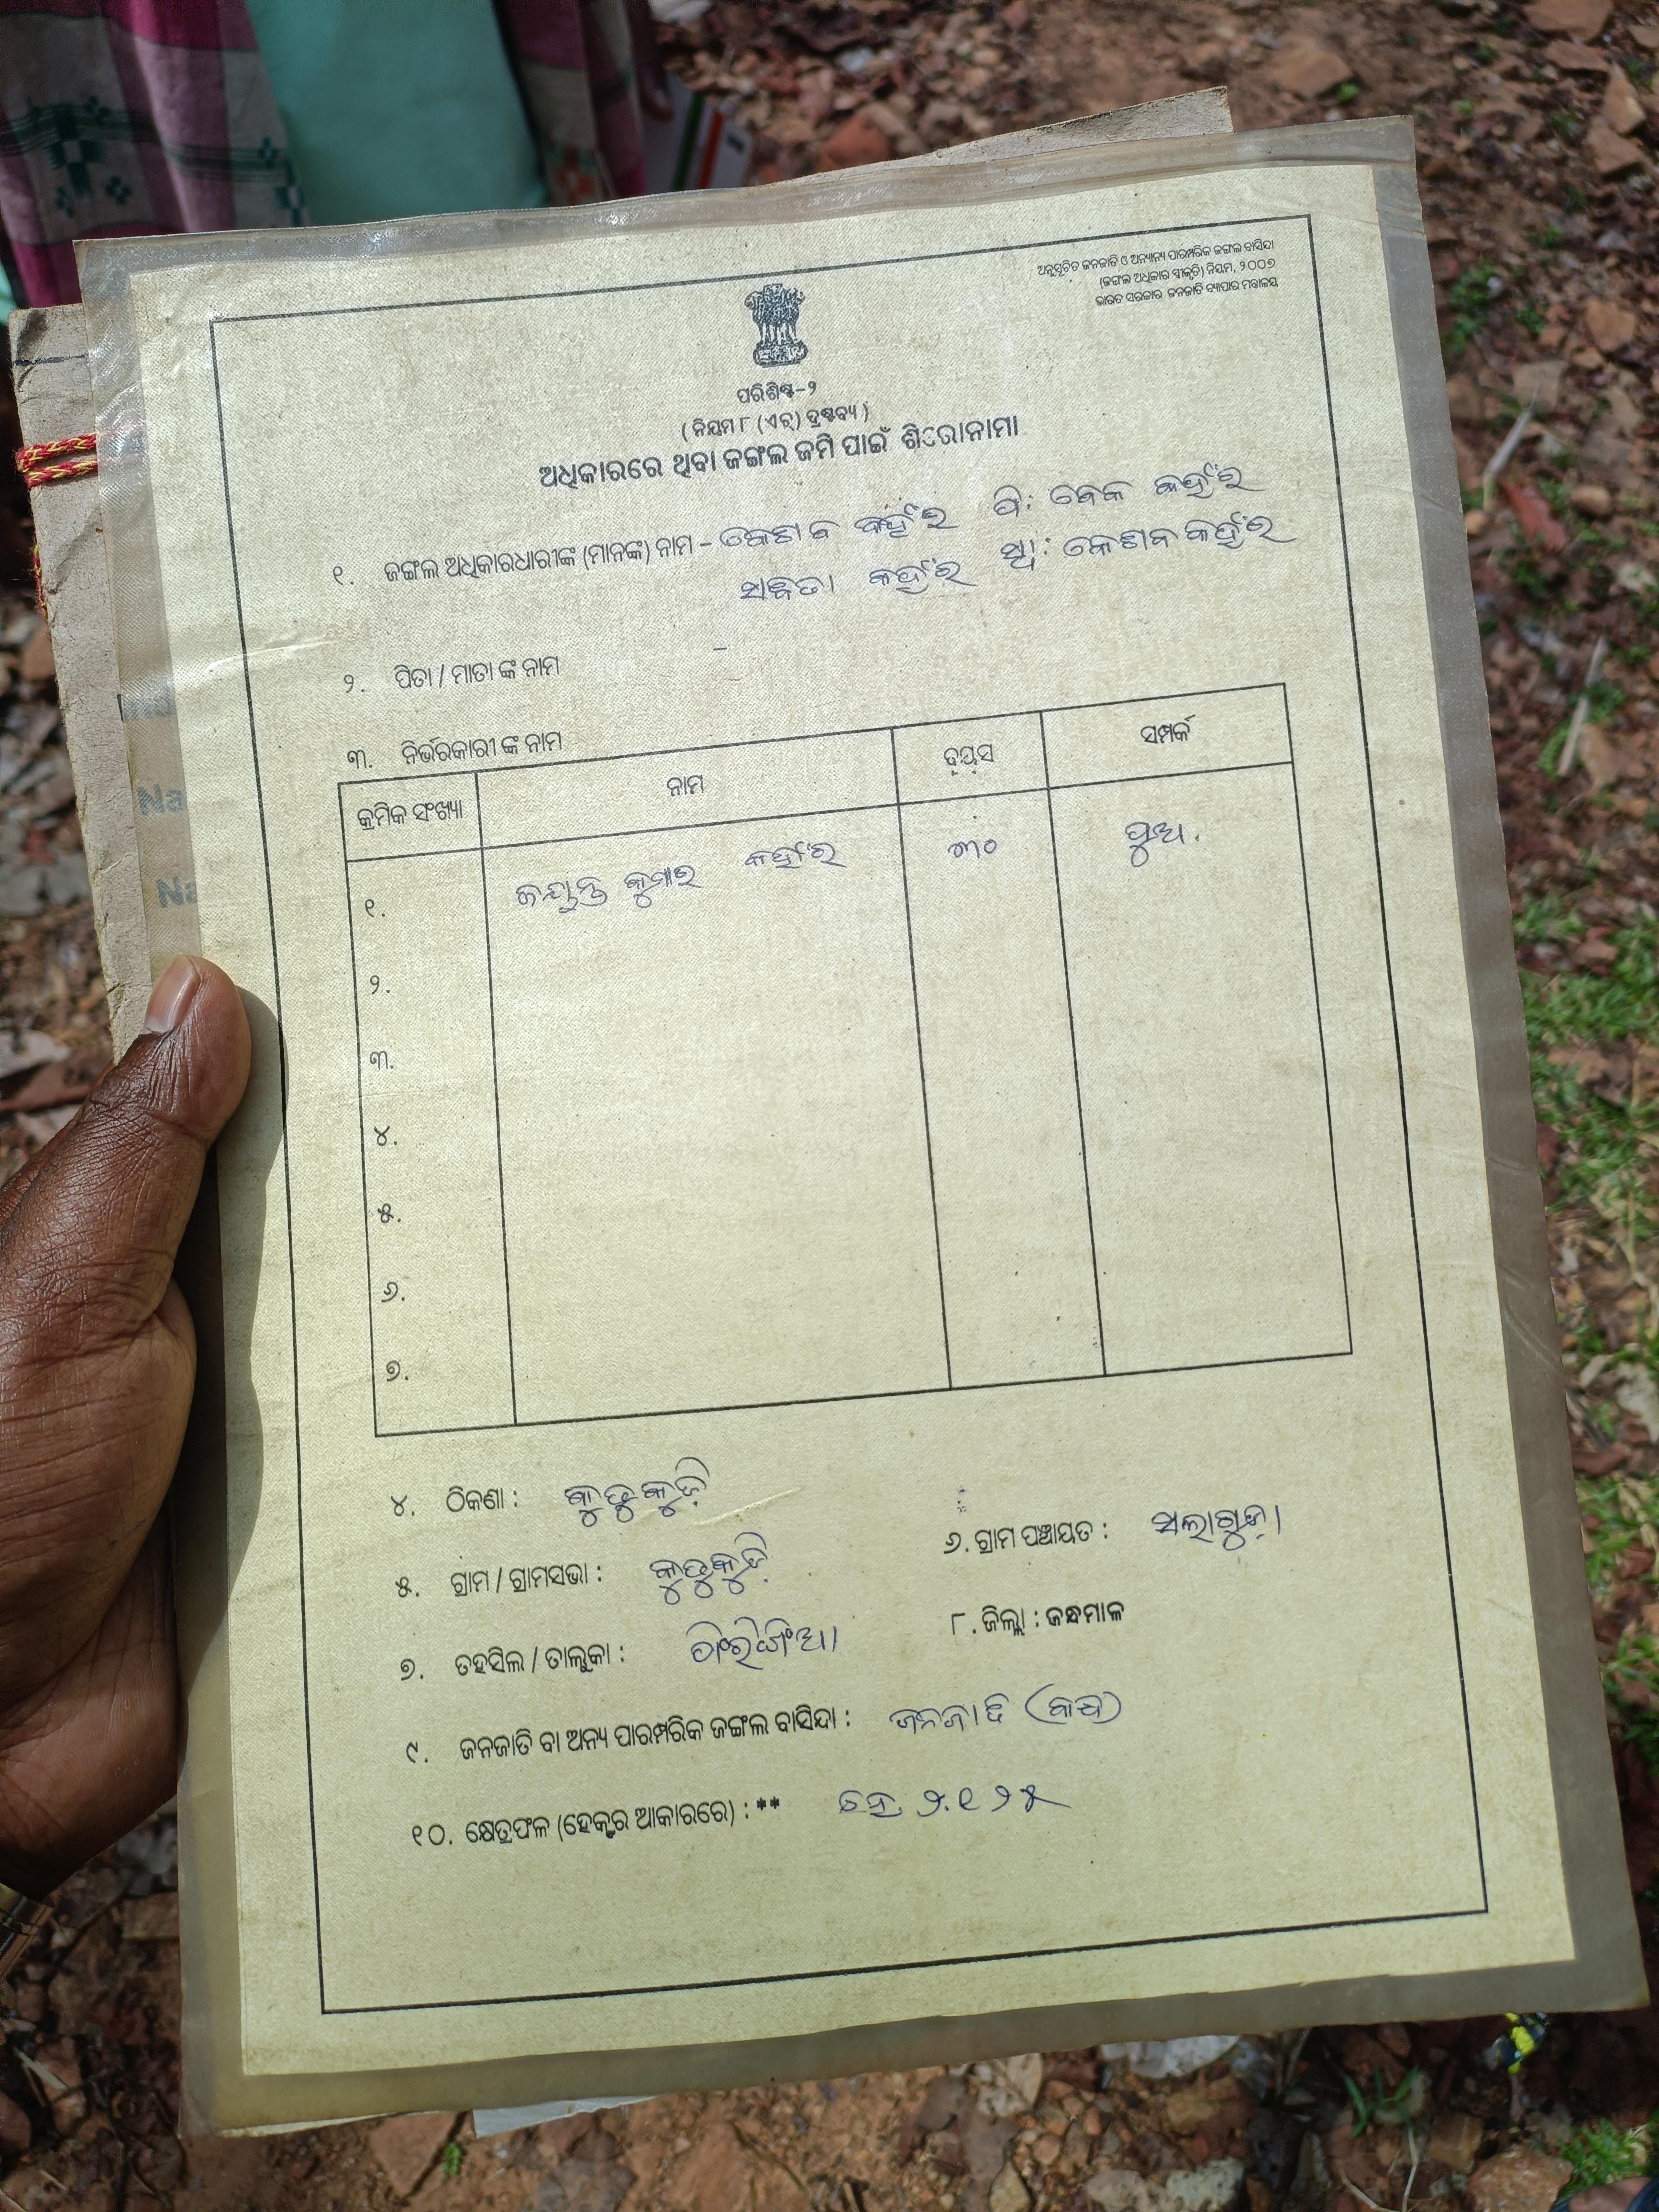 ଅନୁସୂଚିତ ଜନଜାତି ଓ ଅନ୍ୟାନ୍ୟ ପାରମ୍ପରିକ ଜଙ୍ଗଲ ବାସିନ୍ଦା
(ଜଙ୍ଗଲ ଅଧିକାର ସ୍ୱୀକୃତି) ନିୟମ, ୨୦୦୭
ଭାରତ ସରକାର ଜନଜାତି ବ୍ୟାପାର ମନ୍ତ୍ରାଳୟ
ପରିଶିଷ୍ଟ-୨
( ନିୟମ ୮ (ଏଚ୍) ଦ୍ରଷ୍ଟବ୍ୟ )
ଅଧିକାରରେ ଥିବା ଜଙ୍ଗଲ ଜମି ପାଇଁ ଶିରୋନାମା
୧. ଜଙ୍ଗଲ ଅଧିକାରଧାରୀଙ୍କ (ମାନଙ୍କ) ନାମ - କେଶବ କହଁର ପି: ବେକ କହଁର
କହଁର ସ୍ୱା: କେଶବ କହଁର
୨. ପିତା / ମାତା ଙ୍କ ନାମ -
୩. ନିର୍ଭରକାରୀ ଙ୍କ ନାମ
କ୍ରମିକ ସଂଖ୍ୟା ନାମ ବୟସ ସମ୍ପର୍କ
୧. ଜୟନ୍ତ କୁମାର କହଁର ୩୦ ପୁଅ.
୨.
୩.
୪.
୫.
୬.
୭.
୪. ଠିକଣା : କୁଡୁକୁଡ଼ି
୫. ଗ୍ରାମ / ଗ୍ରାମସଭା : କୁଡୁକୁଡ଼ି ୬. ଗ୍ରାମ ପଞ୍ଚାୟତ : ସଲାଗୁଡ଼ା
୭. ତହସିଲ / ତାଲୁକା : ଫିରିଙ୍ଗିଆ ୮. ଜିଲ୍ଲା : କନ୍ଧମାଳ
୯. ଜନଜାତି ବା ଅନ୍ୟ ପାରମ୍ପରିକ ଜଙ୍ଗଲ ବାସିନ୍ଦା : ଜନଜାତି (କନ୍ଧ)
୧୦. କ୍ଷେତ୍ରଫଳ (ହେକ୍ଟର ଆକାରରେ) : ** ହେ. ୨.୧୨୫